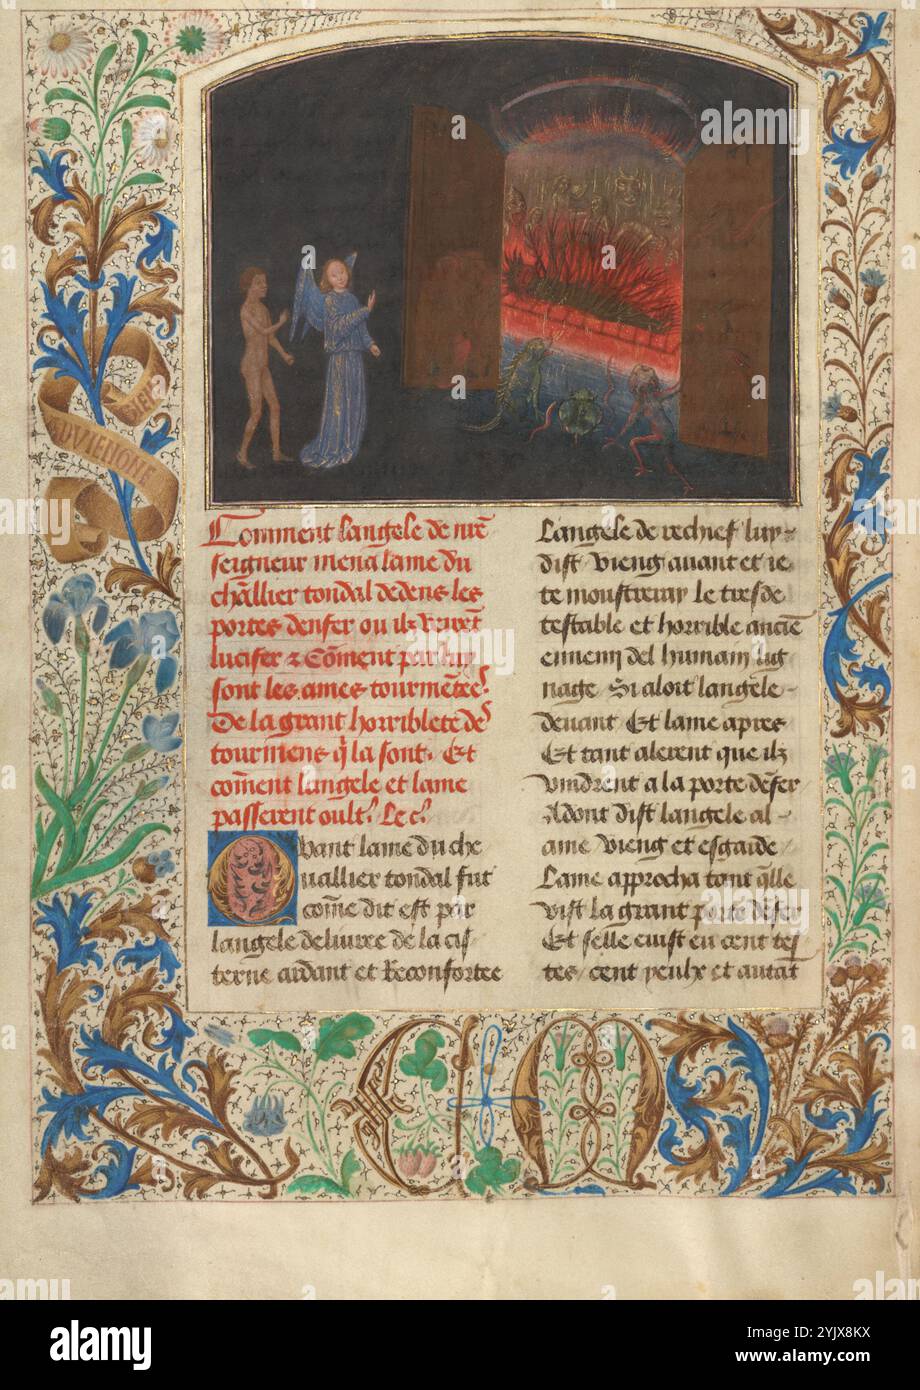 BIEN
AVLIENGNE
Comment langele de mõ
seigneur mena lame du
chãllier tondal dedens les
portes denfer ou ilz virent
lucifer & cõment par luy
sont les ames tourmẽtees
De la grant horriblete des
tourmens q̃ la sont. Et
cõment langele et lame
passerent oultˢ. Le cˢ.
Quant lame du che
uallier tondal fut
cõme dit est par
langele deliuree de la cis-
terne ardant et Reconfortee
Langele de rechief luy
dist Vieng auant et ie
te monstreray le tresde
testable et horrible anciẽ
ennemy del humain lig
nage Si aloit langele
deuant Et lame apres
Et tant alerent que ilz
vindrent a la porte dẽfer
Adont dist langele al-
ame vieng et esgarde
Lame approcha tant q̃lle
vist la grant porte dẽfer
Et selle euist eu cent tes
tes / cent yeulx et autãt
C M
alamy
Image ID: 2YJX8KX
www.alamy.com